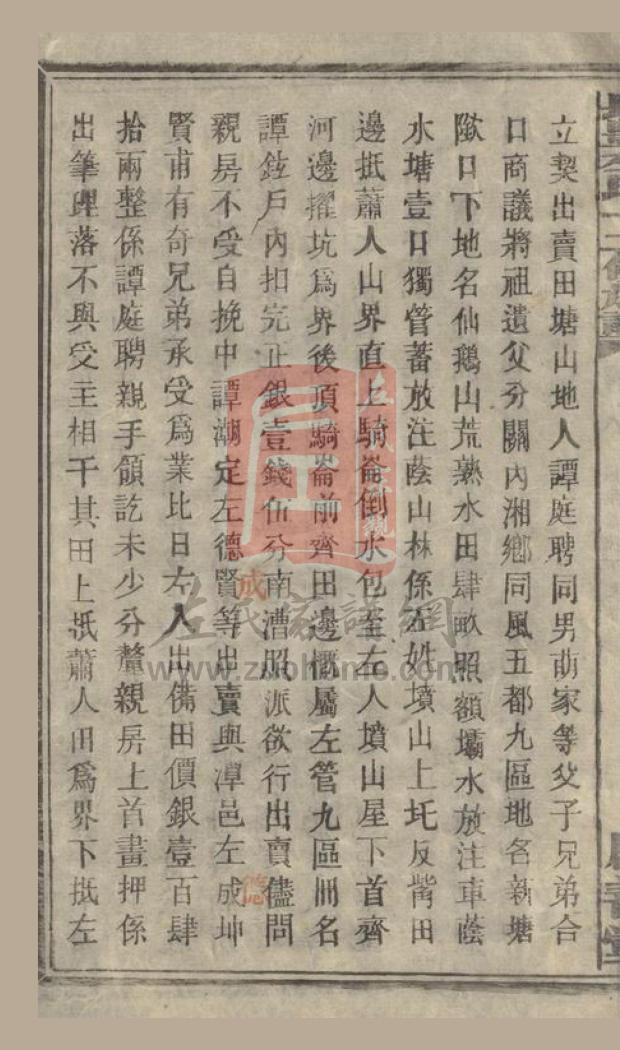 立契出賣田塘山地人譚庭聘同男萌家等父子兄弟合
口商議將祖遺父分關內湘鄉同風五都九區地名新塘
陂口下地名仙鵝山荒熟水田肆畝照額壩水放注車蔭
水塘壹口獨管蓄放注蔭山林係左姓墳山上圫反嘴田
邊抵蕭人山界直上騎崙倒水包至左人墳山屋下首齊
河邊擢坑爲界後頂騎崙前齊田邊槪屬左管九區冊名
譚鉉戶內扣完正銀壹錢伍分南漕照派欲行出賣儘問
親房不受自挽中譚湖定左德賢等出賣與潭邑左成坤
賢甫有奇兄弟承受爲業比日左人出備田價銀壹百肆
拾兩整係譚庭聘親手領訖未少分釐親房上首畫押係
出筆理落不與受主相干其田上抵蕭人田爲界下抵左
成
德
左氏家譜網
www.zsohome.com